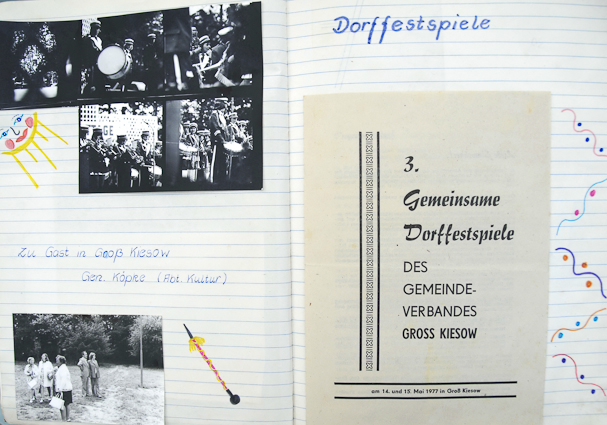 Zu Gast in Groß Kiesow
Gen. Köpke (Abt. Kultur)
Dorffestspiele
3.
Gemeinsame
Dorffestspiele
DES
GEMEINDE-
VERBANDES
GROSS KIESOW
am 14. und 15. Mai 1977 in Groß Kiesow